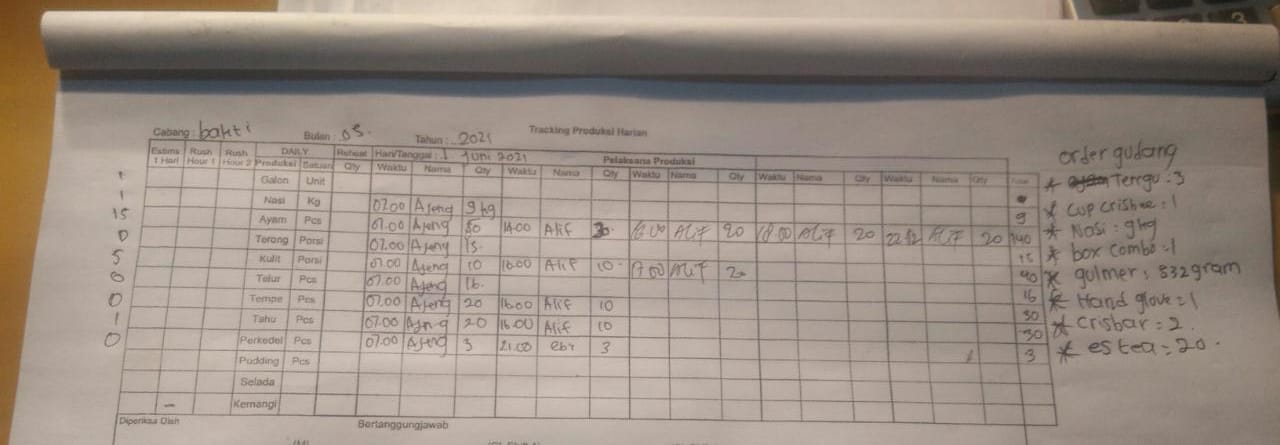 Tracking Produksi Harian
Cabang : bakti Bulan : 05. Tahun : 2021
Estims 1 Hari Rush Hour 1 Rush Hour 2 DAILY Reheat Hari/Tanggal : 1 Juni 2021 Pelaksana Produksi
Produksi Satuan Qty Waktu Nama Qty Waktu Nama Qty Waktu Nama Qty Waktu Nama Qty Waktu Nama Qty
1 Galon Unit
1 Nasi Kg 07.00 Ajeng 9 kg 9
15 Ayam Pcs 07.00 Ajeng 50 14.00 Alif 30 16.00 ALIF 20 18.00 ALIF 20 22.12 ALIF 20 140
0 Terong Porsi 07.00 Ajeng 15 15
5 Kulit Porsi 07.00 Ajeng 10 16.00 Alif 10 17.00 ALIF 20 40
0 Telur Pcs Ajeng 16 16
0 Tempe Pcs 07.00 Ajeng 20 16.00 Alif 10 30
1 Tahu Pcs 07.00 Ajeng 20 16.00 Alif 10 30
0 Perkedel Pcs 07.00 Ajeng 3 21.00 ebr 3 3
Pudding Pcs
Selada
Kemangi
Diperiksa Oleh Bertanggungjawab
order gudang
* Terigu : 3
* Cup crisbee : 1
* Nasi : 9kg
* box combo = 1
* gulmer : 832 gram
* Hand glove = 1
* crisbar = 2
* es tea = 20.